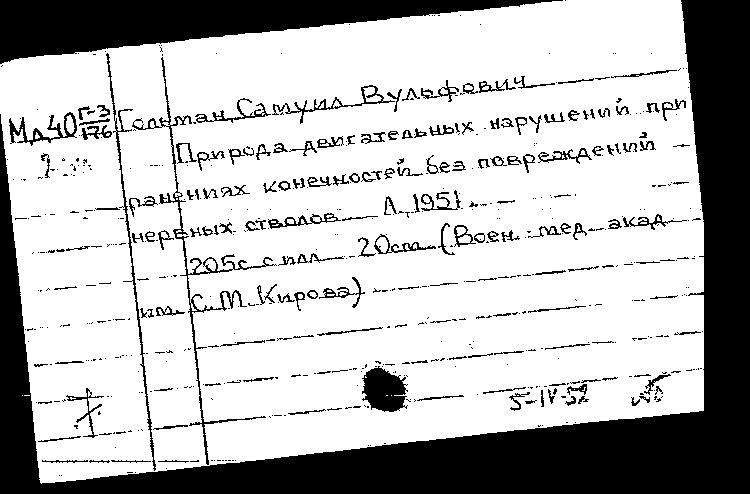 Мд40 Г-3/176 Гольман, Самуил Вульфович
Природа двигательных нарушений при
ранениях конечностей без повреждений
нервных стволов Л, 1951.
205с с илл 20см (Воен. мед. акад.
им. С. М. Кирова)
5-IV-52